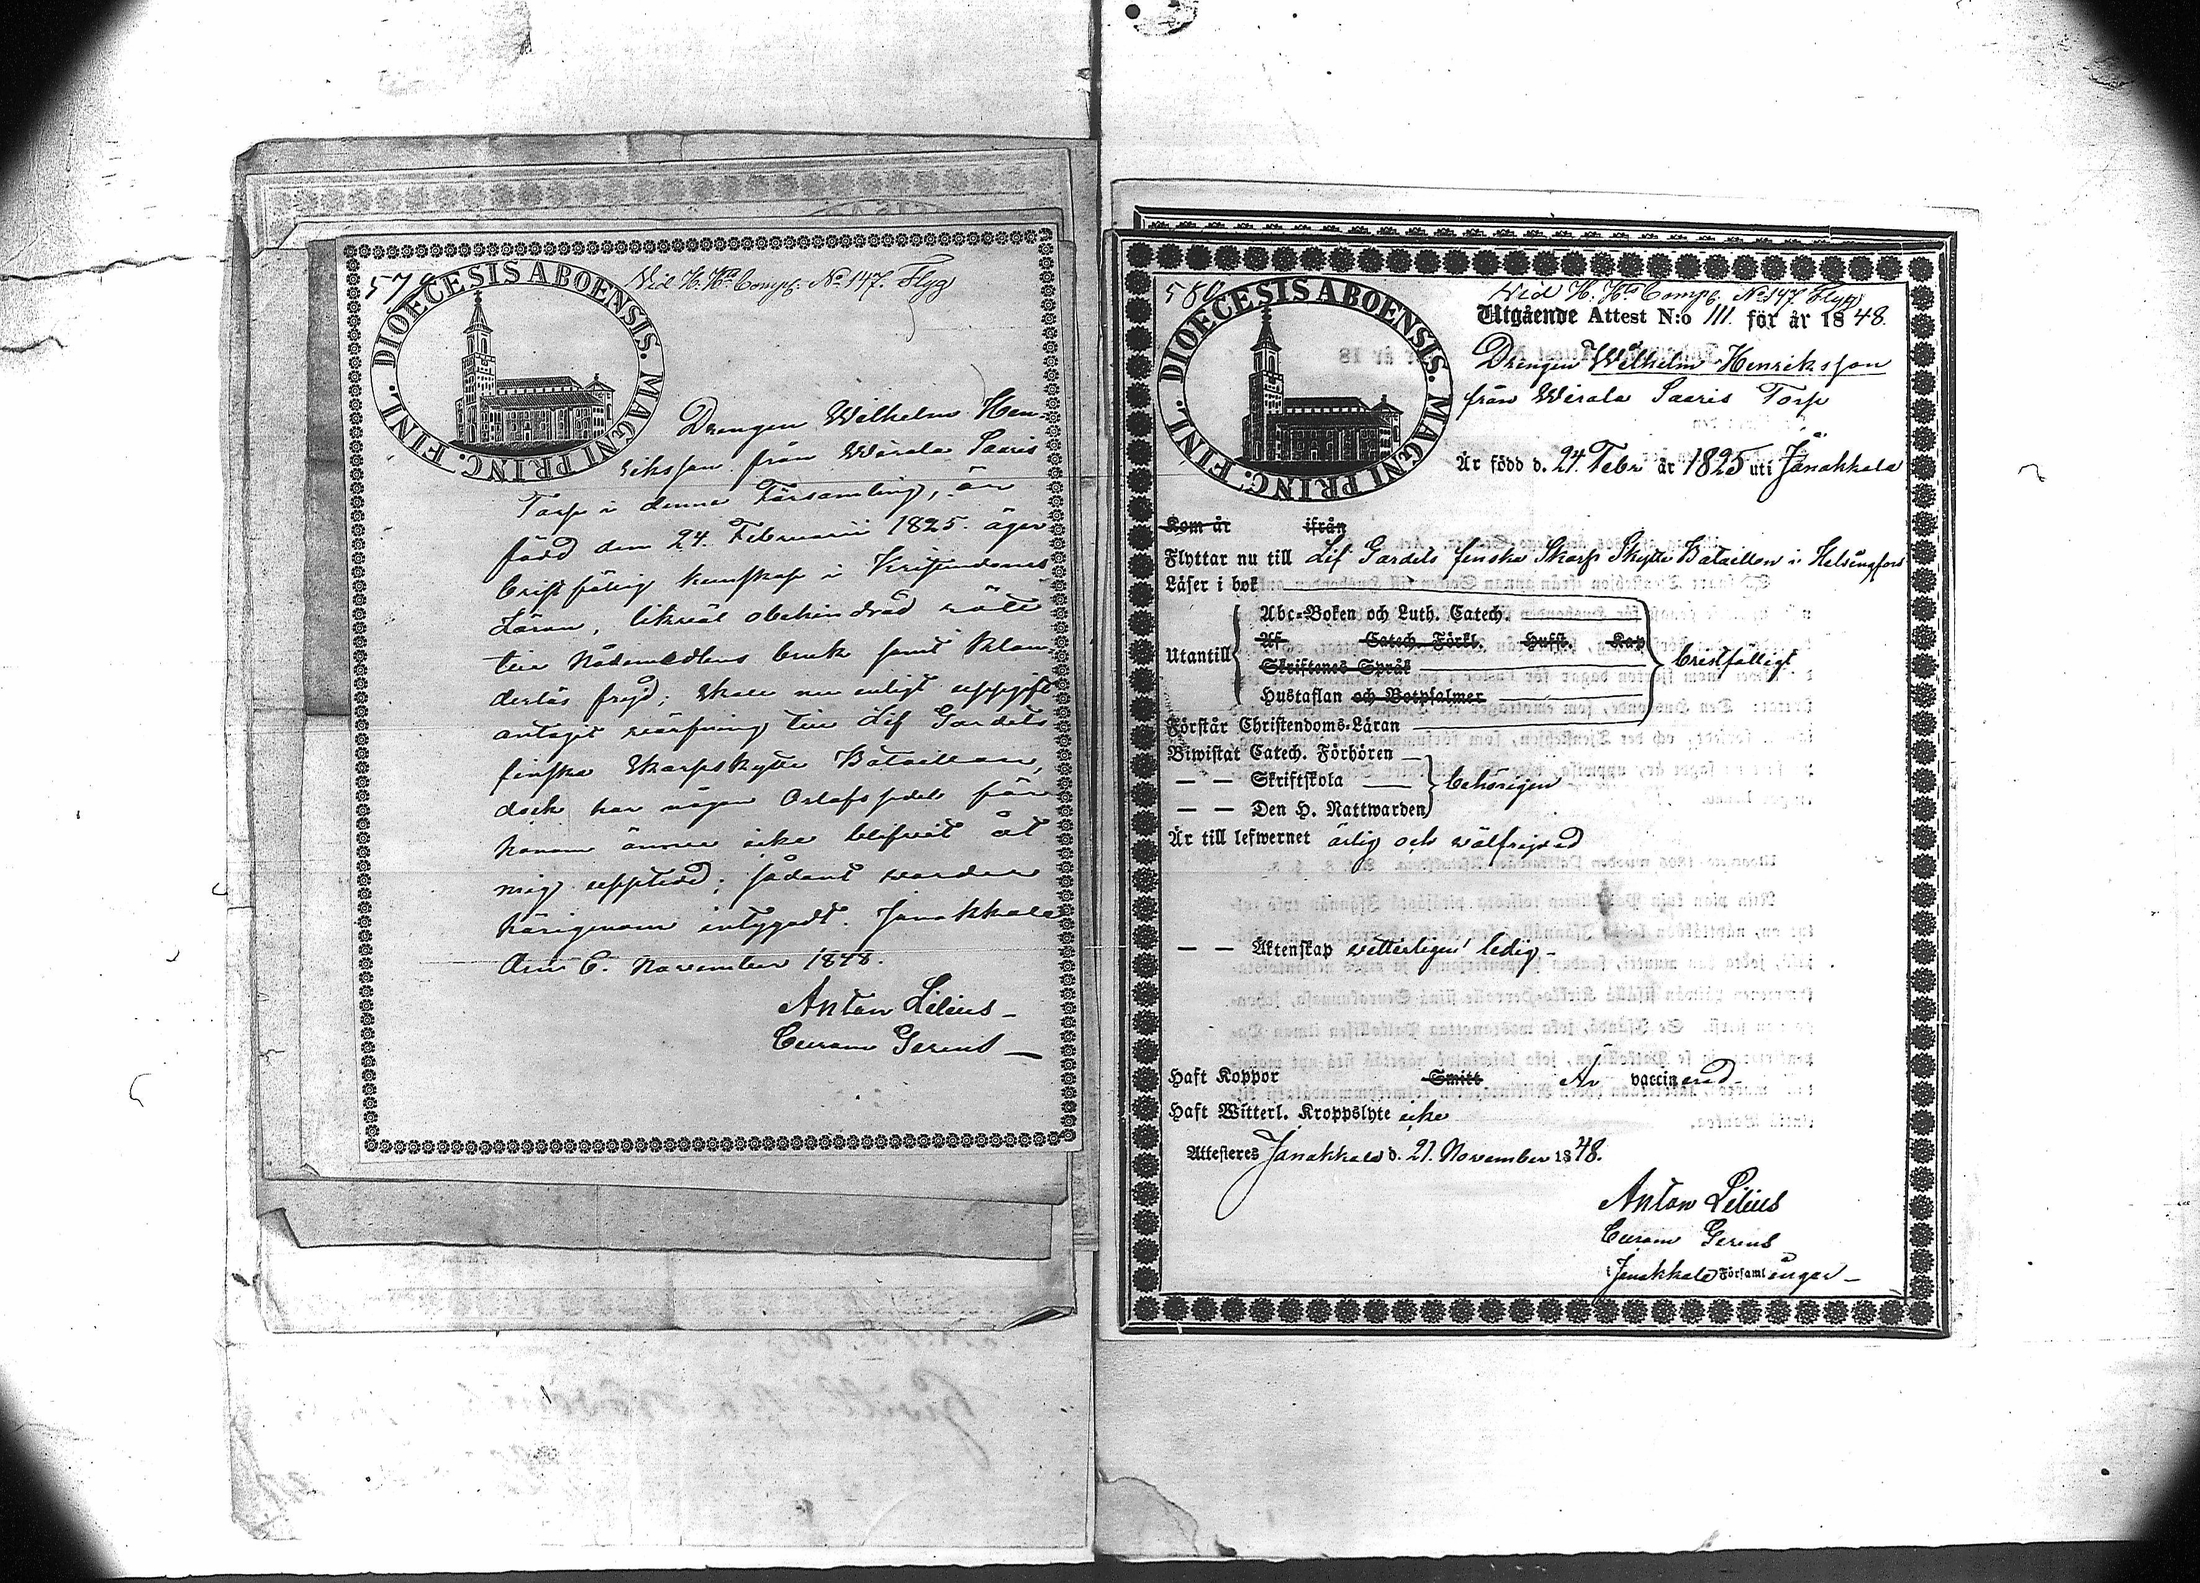 579
DIOECESIS ABOENSIS. MAGNI PRINC. FINL.
Vid H. Hds Comp. No 147. Flyg
Drengen Wilhelm Hen-
riksson från Wirala Saaris
Torp i denna Församling, är
född den 24. Februarii 1825. äger
bristfällig kunskap i Kristendoms
Läran, likväl obehindrad rätt
till Nådemedlens bruk samt klan-
derlös frejd; skall nu enligt uppgift
antagit värfning till Lif Gardets
finska Skarpskytte Bataillon,
dock har någon Orlofssedel för
honom ännu icke blifvit åt
mig upptedd; sådant warder
härigenom intygadt. Janakkala
den 6. November 1848.
Anton Lilius
Curam Gerens
580
DIOECESIS ABOENSIS. MAGNI PRINC. FINL.
Vid H. Hds Comp. No 147 Flyg
Utgående Attest N:o 111. för år 1848.
Drengen Wilhelm Henriksson
från Wirala Saaris Torp
Är född d. 24. Febr år 1825 uti Janakkala
Kom år ifrån
Flyttar nu till Lif Gardets finska Skarp Skytte Bataillon i Helsingfors
Läser i bok
Utantill
Abc-Boken och Luth. Catech.
Af Catech. Förkl. Hufst. Kap
Skriftenes Språk
Hustaflan och Botpsalmer
bristfälligt
Förstår Christendoms-Läran
Biwistat Catech. Förhören
— — Skriftskola
behörigen
— — Den H. Nattwarden
Är till lefwernet ärlig och wälfrejdad
— — Äktenskap witterligen ledig
Haft Koppor Smitt Är vaccinerad
Haft Witterl. Kroppslyte icke
Attesteres Janakkala d. 21. November 1848.
Anton Lilius
Curam Gerens
i Janakkala Församlingar